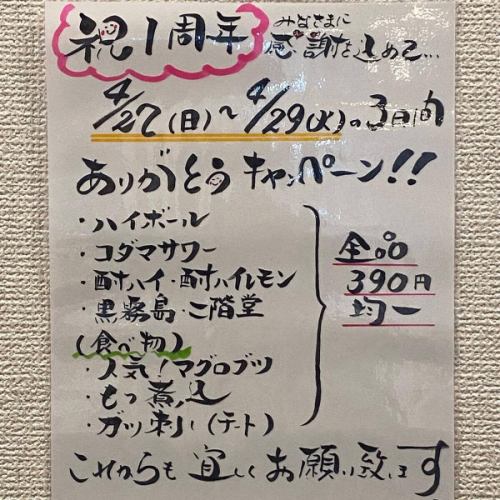 祝1周年 みなさまに
感謝を込めて…
4/27(日)〜4/29(火)の3日間
ありがとうキャンペーン!!
・ハイボール
・コダマサワー
・酎ハイ・酎ハイレモン
・黒霧島・二階堂
全品
390円
均一
(食べ物)
・人気!マグロブツ
・もつ煮込
・ガツ刺し(チート)
これからも宜しくお願い致します